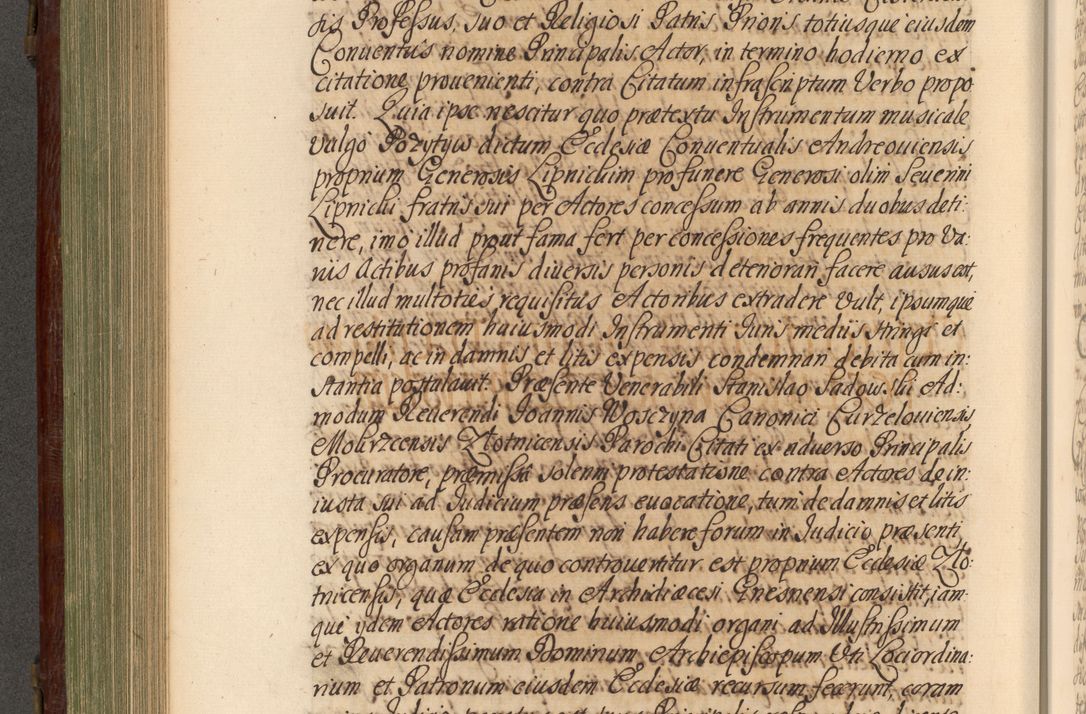 sis Professus, suo et Religiosi Patris Prioris totiusque eiusdem
Conuentûs nomine Principalis Actor, in termino hodierno ex
citatione prouenienti, contra Citatum infrascriptum Verbo propo
suit. Quia ipse nescitur quo prætextu Instrumentum musicale
vulgò Pozytyw dictum Ecclesiæ Conuentualis Andreouiensis
proprium Generosis Lipnickim pro funere Generosi olim Seuerini
Lipnicki fratris sui per Actores concessum ab annis duobus deti:
nere, imò illud prout fama fert per concessiones frequentes pro va:
riis Actibus profanis diuersis personis deteriorari facere ausus est,
nec illud multoties requisitus Actoribus extradere vult, ipsumque
ad restitutionem huiusmodi Instrumenti Iuris mediis stringi et
compelli, ac in damnis et litis expensis condemnari debita cum in:
stantia postulauit. Præsente Venerabili Stanislao Sadowski Ad:
modum Reuerendi Ioannis Wosczyna Canonici Curzelouiensis
Mokrzcensis Złotnicensis Parochi Citati ex aduerso Principalis
Procuratore, præmissâ solenni protestatione contra Actores de in:
iusta sui ad Iudicium præsens euocatione, tum de damnis et litis
expensis, causam præsentem non habere forum in Iudicio præsenti,
ex quo organum de quo controuertitur est proprium Ecclesiæ Zło:
tnicensis, quæ Ecclesia in Archidiæcesi Gnesnensi consistit, iam:
que ijdem Actores ratione huiusmodi organi ad Illustrissimum
et Reuerendissimum Dominum Archiepiscopum Vti Loci ordina:
rium et Patronum eiusdem Ecclesiæ recursum fecerunt, coram